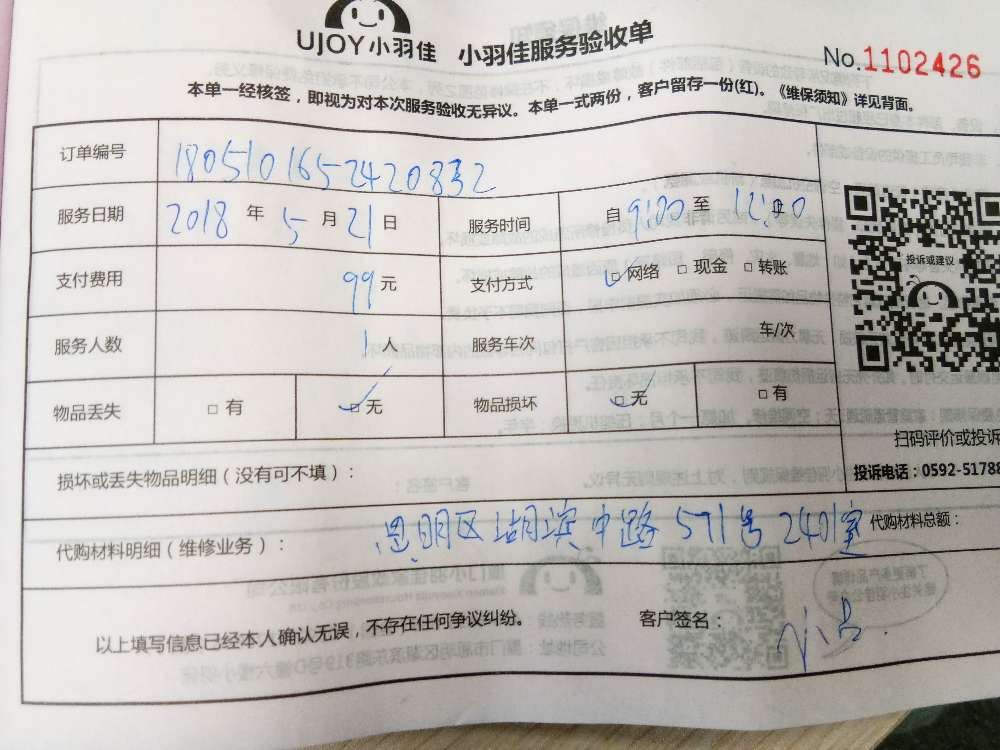 UJOY小羽佳 小羽佳服务验收单
No.1102426
本单一经核签，即视为对本次服务验收无异议。本单一式两份，客户留存一份(红)。《维保须知》详见背面。
订单编号 180510165242083​2
服务日期 2018 年 5 月 21 日 服务时间 自 9:00 至 12:00
投诉或建议
支付费用 99 元 支付方式 □网络 □现金 □转账
服务人数 1 人 服务车次 车/次
物品丢失 □有 □无 物品损坏 □无 □有
扫码评价或投诉
损坏或丢失物品明细（没有可不填）：
投诉电话：0592-51788
代购材料明细（维修业务）： 思明区湖滨中路571号2401室 代购材料总额：
以上填写信息已经本人确认无误，不存在任何争议纠纷。 客户签名：